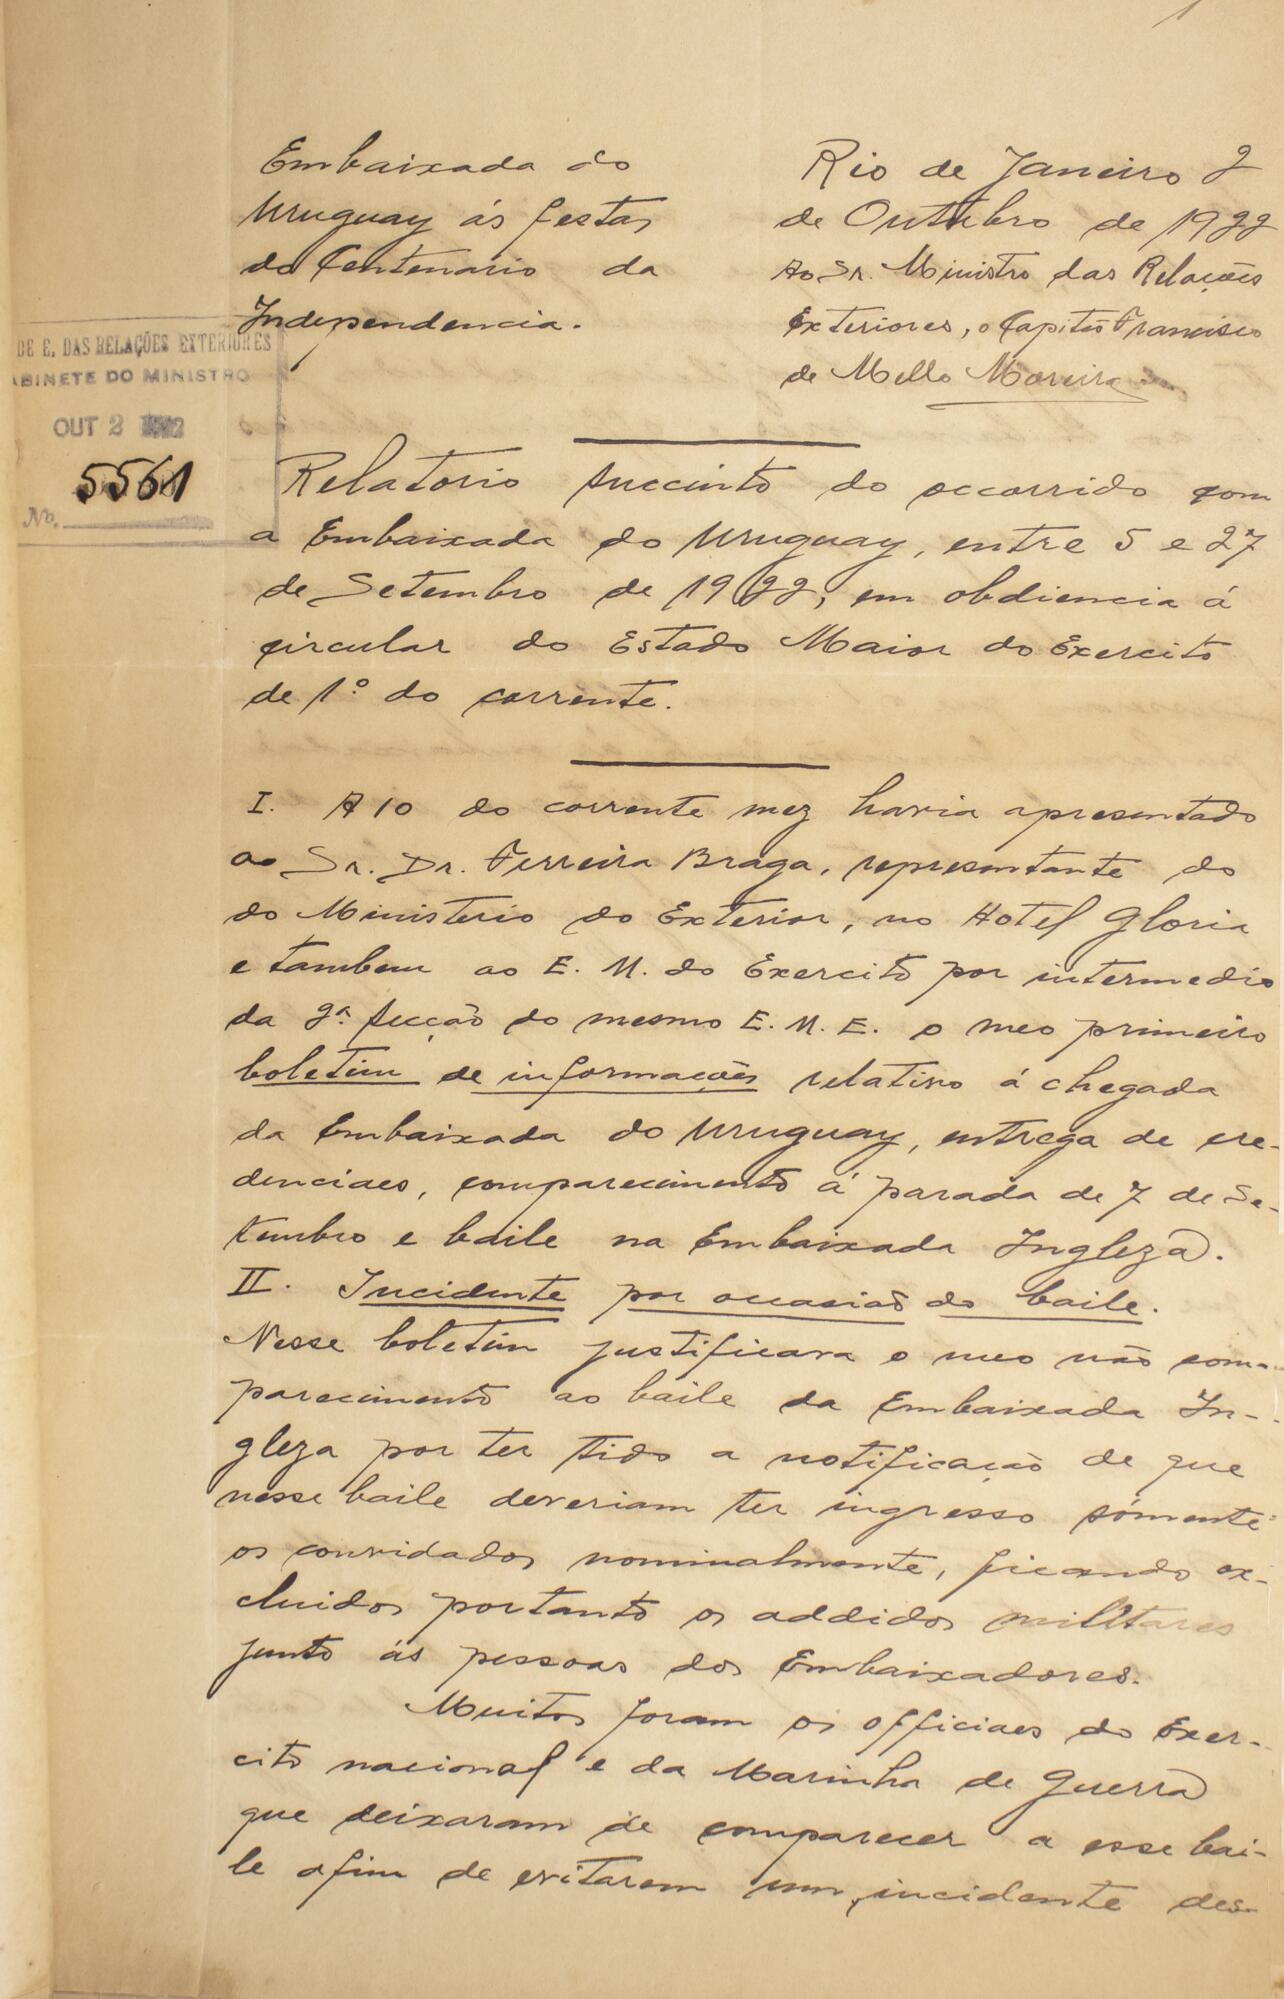 Embaixada do
Uruguay ás festas
do Centenario da
Independencia.
Rio de Janeiro 2
de Outubro de 1922
Ao Sr. Ministro das Relações
Exteriores, o Capitão Francisco
de Mello Moreira
DE E. DAS RELAÇÕES EXTERIORES
ABINETE DO MINISTRO
OUT 2
5561
No.
Relatorio succinto do occorrido com
a Embaixada do Uruguay, entre 5 e 27
de Setembro de 1922, em obdiencia á
circular do Estado Maior do Exercito
de 1º do corrente.
I. A 10 do corrente mez havia apresentado
ao Sr. Dr. Ferreira Braga, representante do
do Ministerio do Exterior, no Hotel Gloria
e tambem ao E. M. do Exercito por intermedio
da 2ª secção do mesmo E. M. E. o meo primeiro
boletim de informações relativo á chegada
da Embaixada do Uruguay, entrega de cre-
denciaes, comparecimento á parada de 7 de Se-
tembro e baile na Embaixada Ingleza.
II. Incidente por occasião do baile.
Nesse boletim justificara o meo não com-
parecimento ao baile da Embaixada In-
gleza por ter tido a notificação de que
nesse baile deveriam ter ingresso sómente
os convidados nominalmente, ficando ex-
cluidos portanto os addidos militares
junto ás pessoas dos Embaixadores.
Muitos foram os officiaes do Exer-
cito nacional e da Marinha de Guerra
que deixaram de comparecer a esse bai-
le afim de evitarem um incidente des-